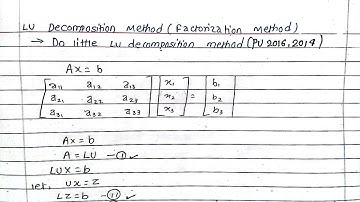 LU Decomposition Method (Factorization method)
→ Do little LU decomposition method (PU 2016, 2019)
Ax = b
[a11 a12 a13] [x1] = [b1]
[a21 a22 a23] [x2] [b2]
[a31 a32 a33] [x3] [b3]
Ax = b
A = LU — ① ✓
LUx = b
let, Ux = Z
LZ = b — ② ✓